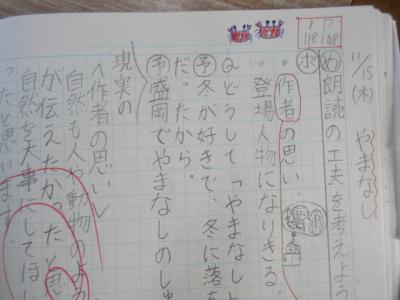 11/15(木) やまなし
P108
118
め 朗読の工夫を考えよう
ポ
・作者の思い。
・登場人物になりきる。
Qどうして「やまなし」
予 冬が好きで、冬に落
だったから。
予 盛岡でやまなしのし
現実の
〈作者の思い〉
自然も人も動物のよ
が伝えたかったと思
自然を大事にしてほし
ったと思います。